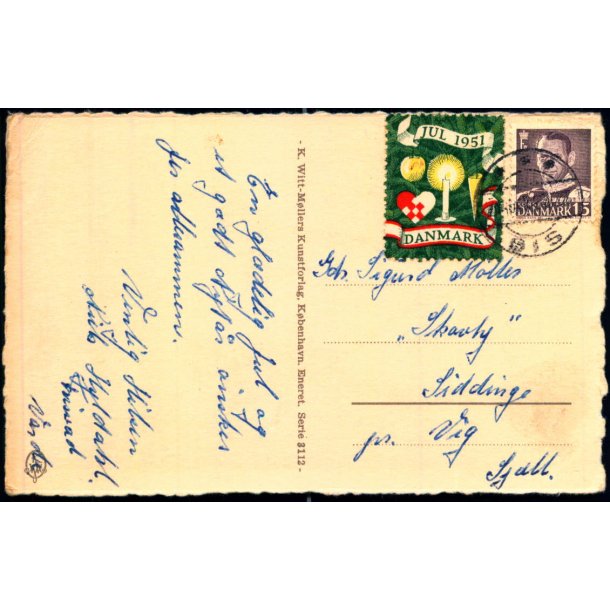 En glædelig Jul og
et godt Nytår ønskes
Jer allesammen.
Venlig Hilsen
Kyldahl.
Varde
- K. Witt-Møllers Kunstforlag, København. Eneret. Serie 3112 -
JUL 1951
DANMARK
DANMARK 15
Sigurd Møller
„Skovly"
Siddinge
pr. Vig
Sjæll.